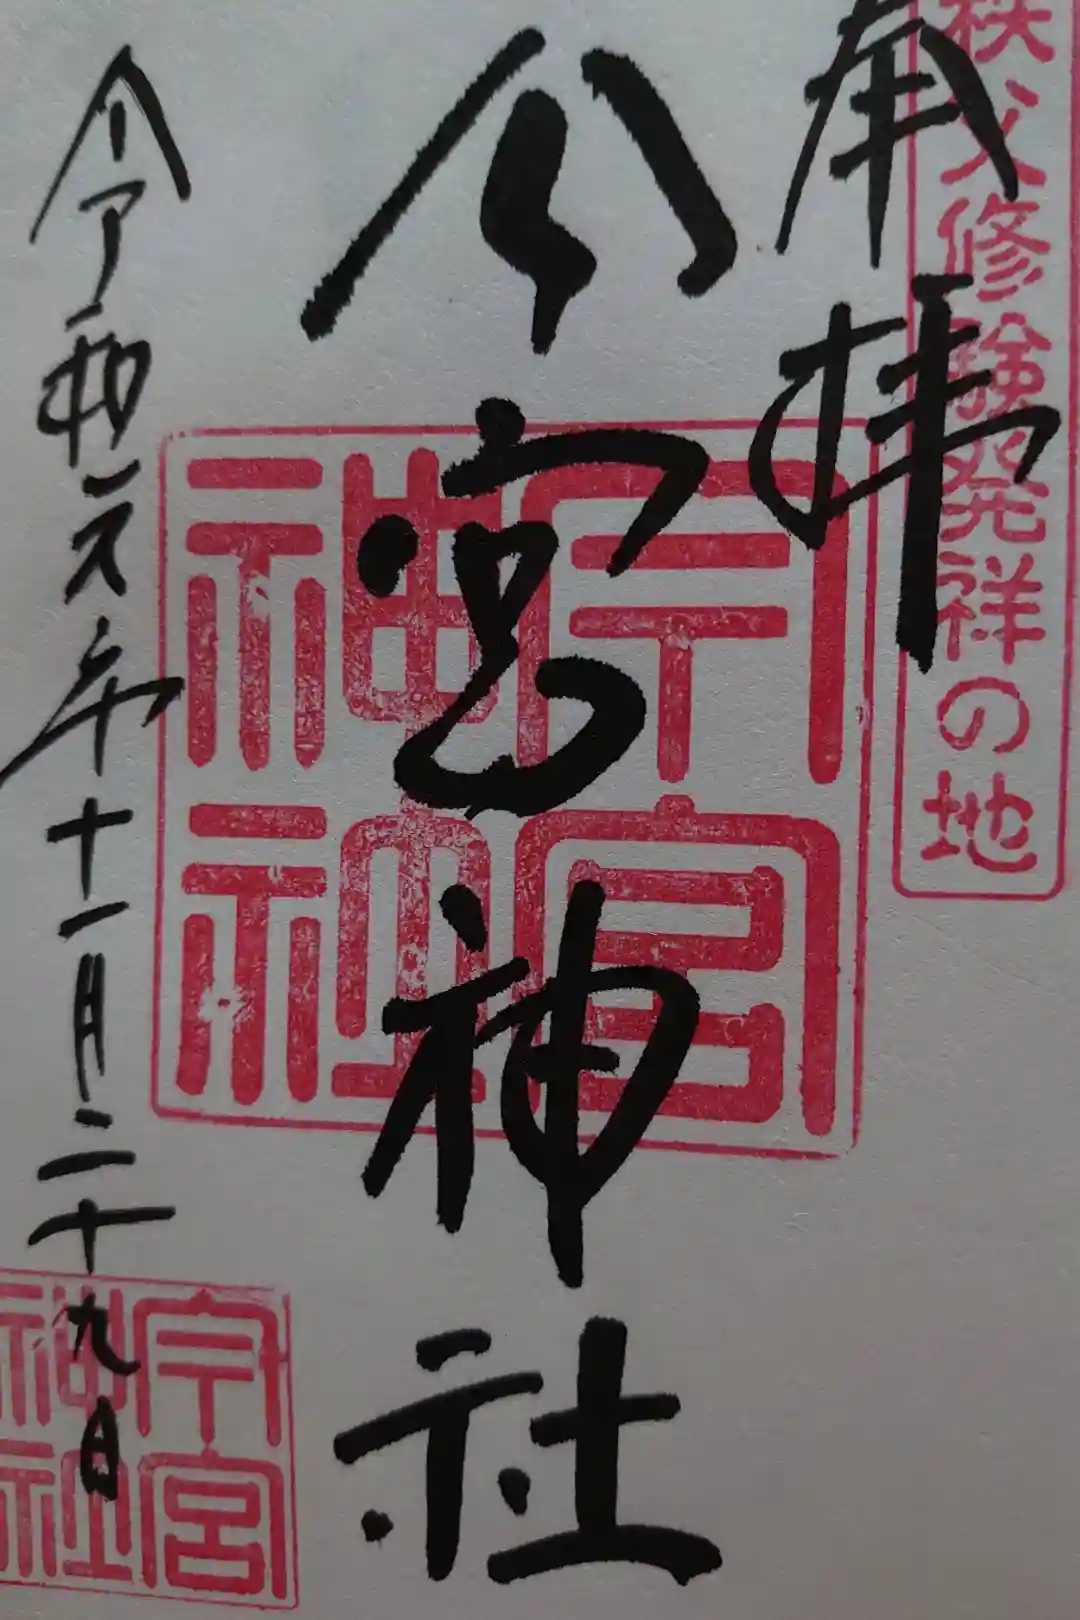 秩父修験発祥の地
奉拝
今宮神社
今宮神社
令和元年十一月二十九日
今宮神社